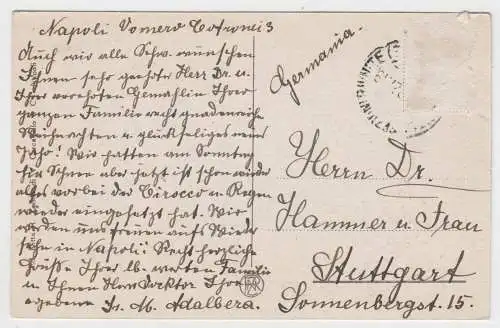 Napoli Vomero Cotronei 3
Auch wir alle Schw. wünschen
Ihnen sehr geehrter Herr Dr. u.
Ihrer verehrten Gemahlin Ihrer
ganzen Familie recht gnadenreiche
Weihnachten u. glückseliges neues
Jahr! Wir hatten am Sonntag
hier Schnee aber jetzt ist schon wieder
alles vorbei der Cirocco u. Regen
wieder eingesetzt hat. Wir
werden uns freuen aufs Wieder
sehn in Napoli! Recht herzliche
Grüße Ihrer lb. werten Familie
u Ihnen Herr Doktor Ihre
ergebene Sr. M. Adalbera.
Germania.
Herrn Dr.
Hammer u. Frau
Stuttgart
Sonnenbergst. 15.